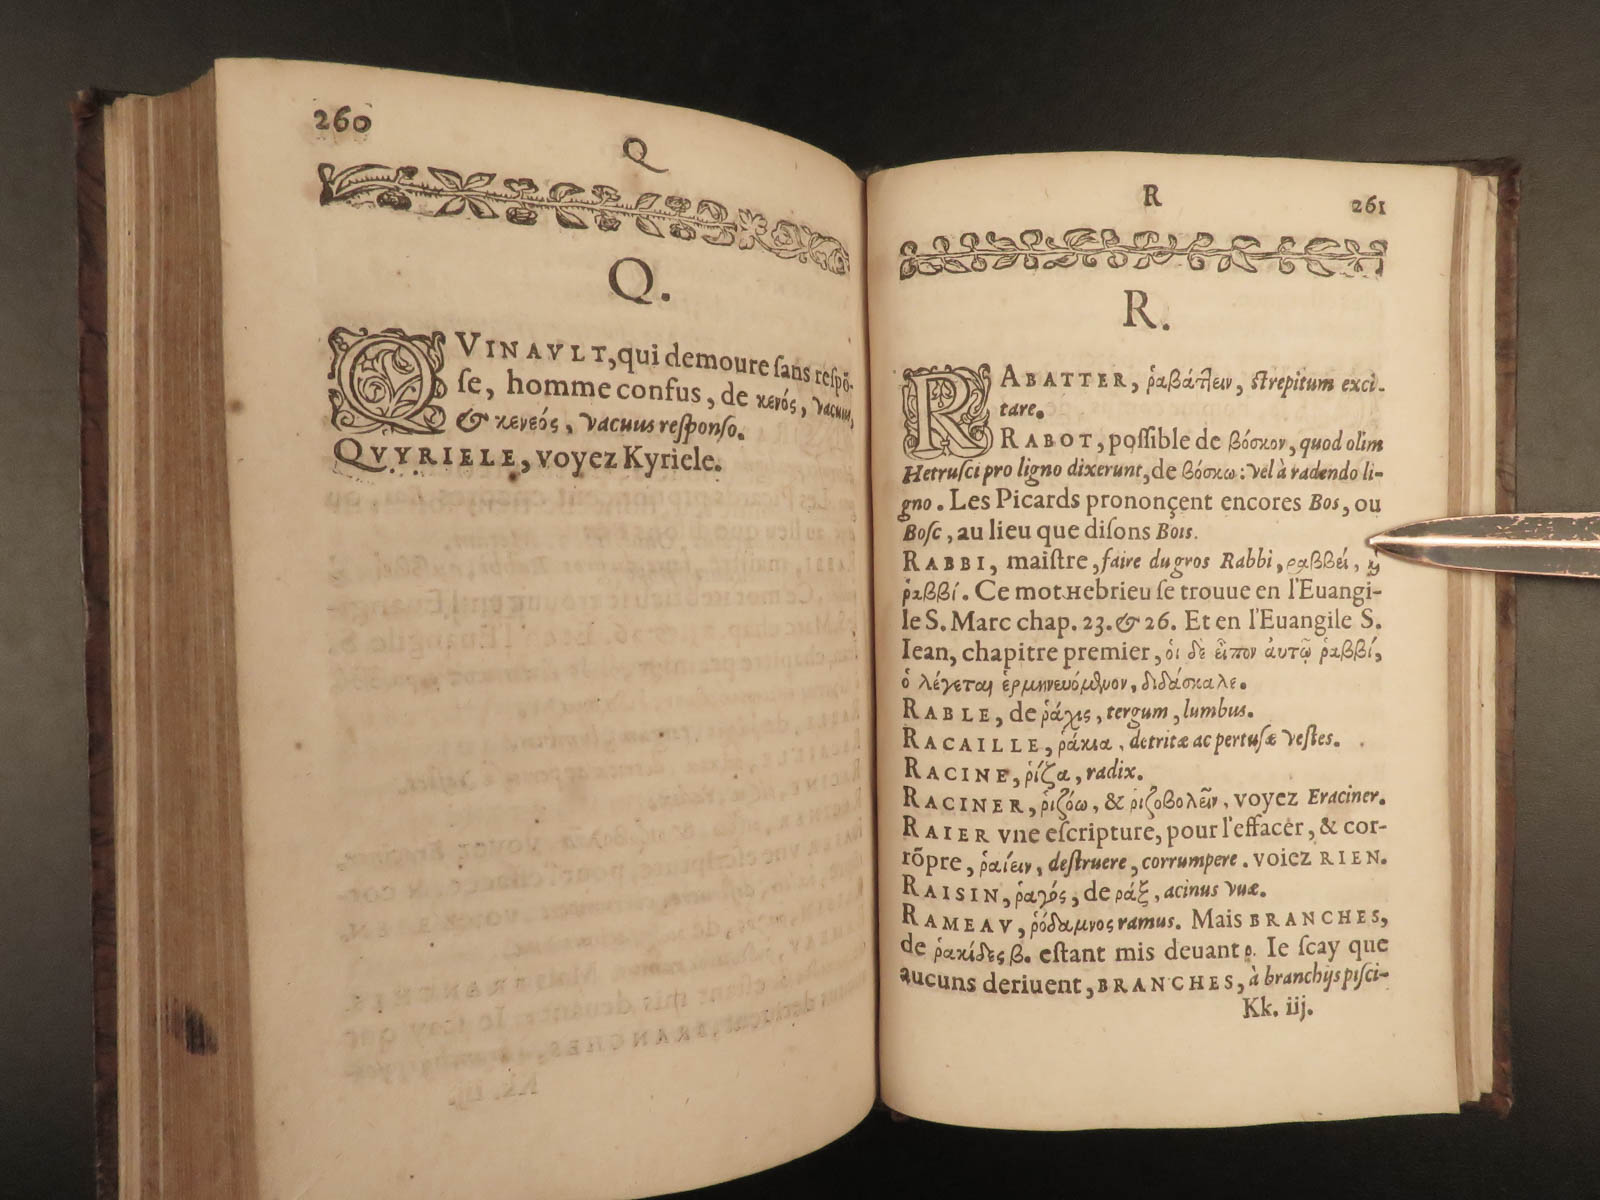 260
Q
Q.
QVINAVLT, qui demoure ſans reſpõ-
ſe, homme confus, de κενός, vacuus,
& κενεός, vacuus reſponſo.
QVYRIELE, voyez Kyriele.
R
261
R.
RABATTER, ῥαβάτϊειν, strepitum exci-
tare.
RABOT, poſſible de βόσκον, quod olim
Hetruſci pro ligno dixerunt, de βόσκω: vel à radendo li-
gno. Les Picards prononçent encores Bos, ou
Boſc, au lieu que diſons Bois.
RABBI, maiſtre, faire du gros Rabbi, ραββεί, ϗ
ῥαββί. Ce mot Hebrieu ſe trouue en l'Euangi-
le S. Marc chap. 23. & 26. Et en l'Euangile S.
Iean, chapitre premier, οἱ δὲ εἶπον ἀυτῷ ῥαββί,
ὁ λέγεται ἑρμηνευόμενον, διδάσκαλε.
RABLE, de ῥάχις, tergum, lumbus.
RACAILLE, ῥάκια, detritæ ac pertuſæ veſtes.
RACINE, ῥίζα, radix.
RACINER, ῥιζόω, & ῥιζοβολεῖν, voyez Eraciner.
RAIER vne eſcripture, pour l'effacer, & cor-
rõpre, ῥαίειν, deſtruere, corrumpere. voiez RIEN.
RAISIN, ῥαγός, de ράξ, acinus vuæ.
RAMEAV, ῥόδαμνος ramus. Mais BRANCHES,
de ῥακίδες β. eſtant mis deuant ρ. Ie ſcay que
aucuns deriuent, BRANCHES, à branchijs piſci-
Kk. iij.